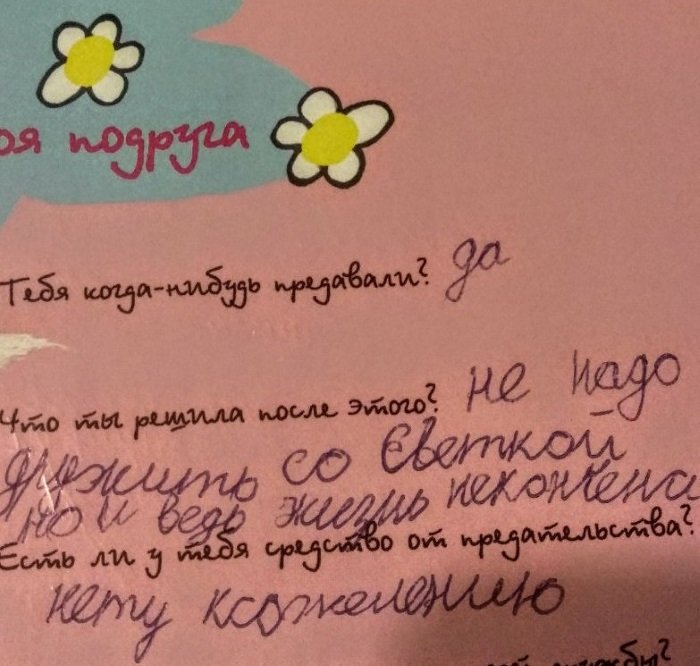 оя подруга
Тебя когда-нибудь предавали? да
Что ты решила после этого? не надо
дружить со Светкой
но и ведь жизнь неконченa
Есть ли у тебя средство от предательства?
нету ксожелению